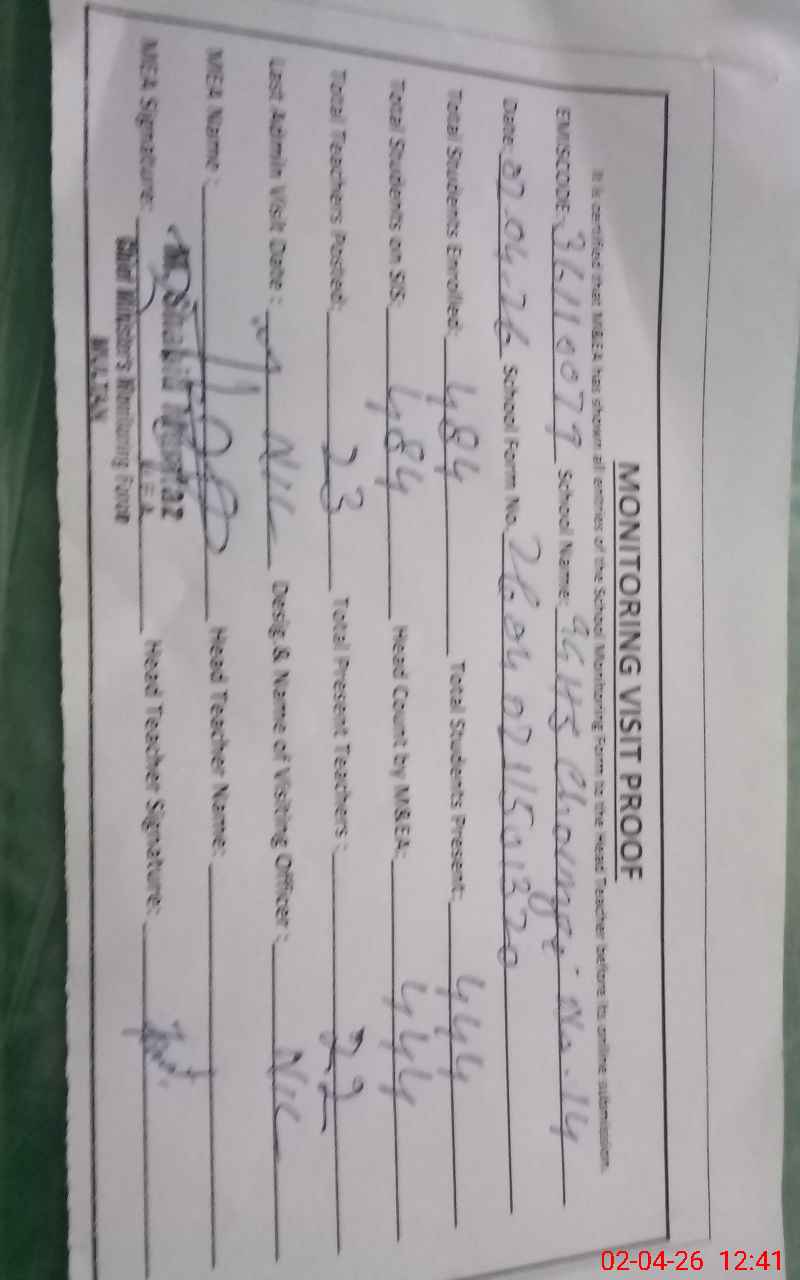 MONITORING VISIT PROOF
It is certified that M&EA has shown all entries of the School Monitoring Form to the Head Teacher before its online submission.
EMISCODE: 36110079 School Name: GGHS No. 14
Date: 02.04.26 School Form No. 26040211501320
Total Students Enrolled: 484 Total Students Present: 444
Total Students on SIS: 484 Head Count by M&EA: 444
Total Teachers Posted: 23 Total Present Teachers: 22
Last Admin Visit Date: NIL Desig & Name of Visiting Officer: NIL
MEA Name: Head Teacher Name:
MEA Signature: Head Teacher Signature:
M. Shahid Mumtaz
M.E.A
Chief Minister's Monitoring Force
MULTAN
02-04-26 12:41